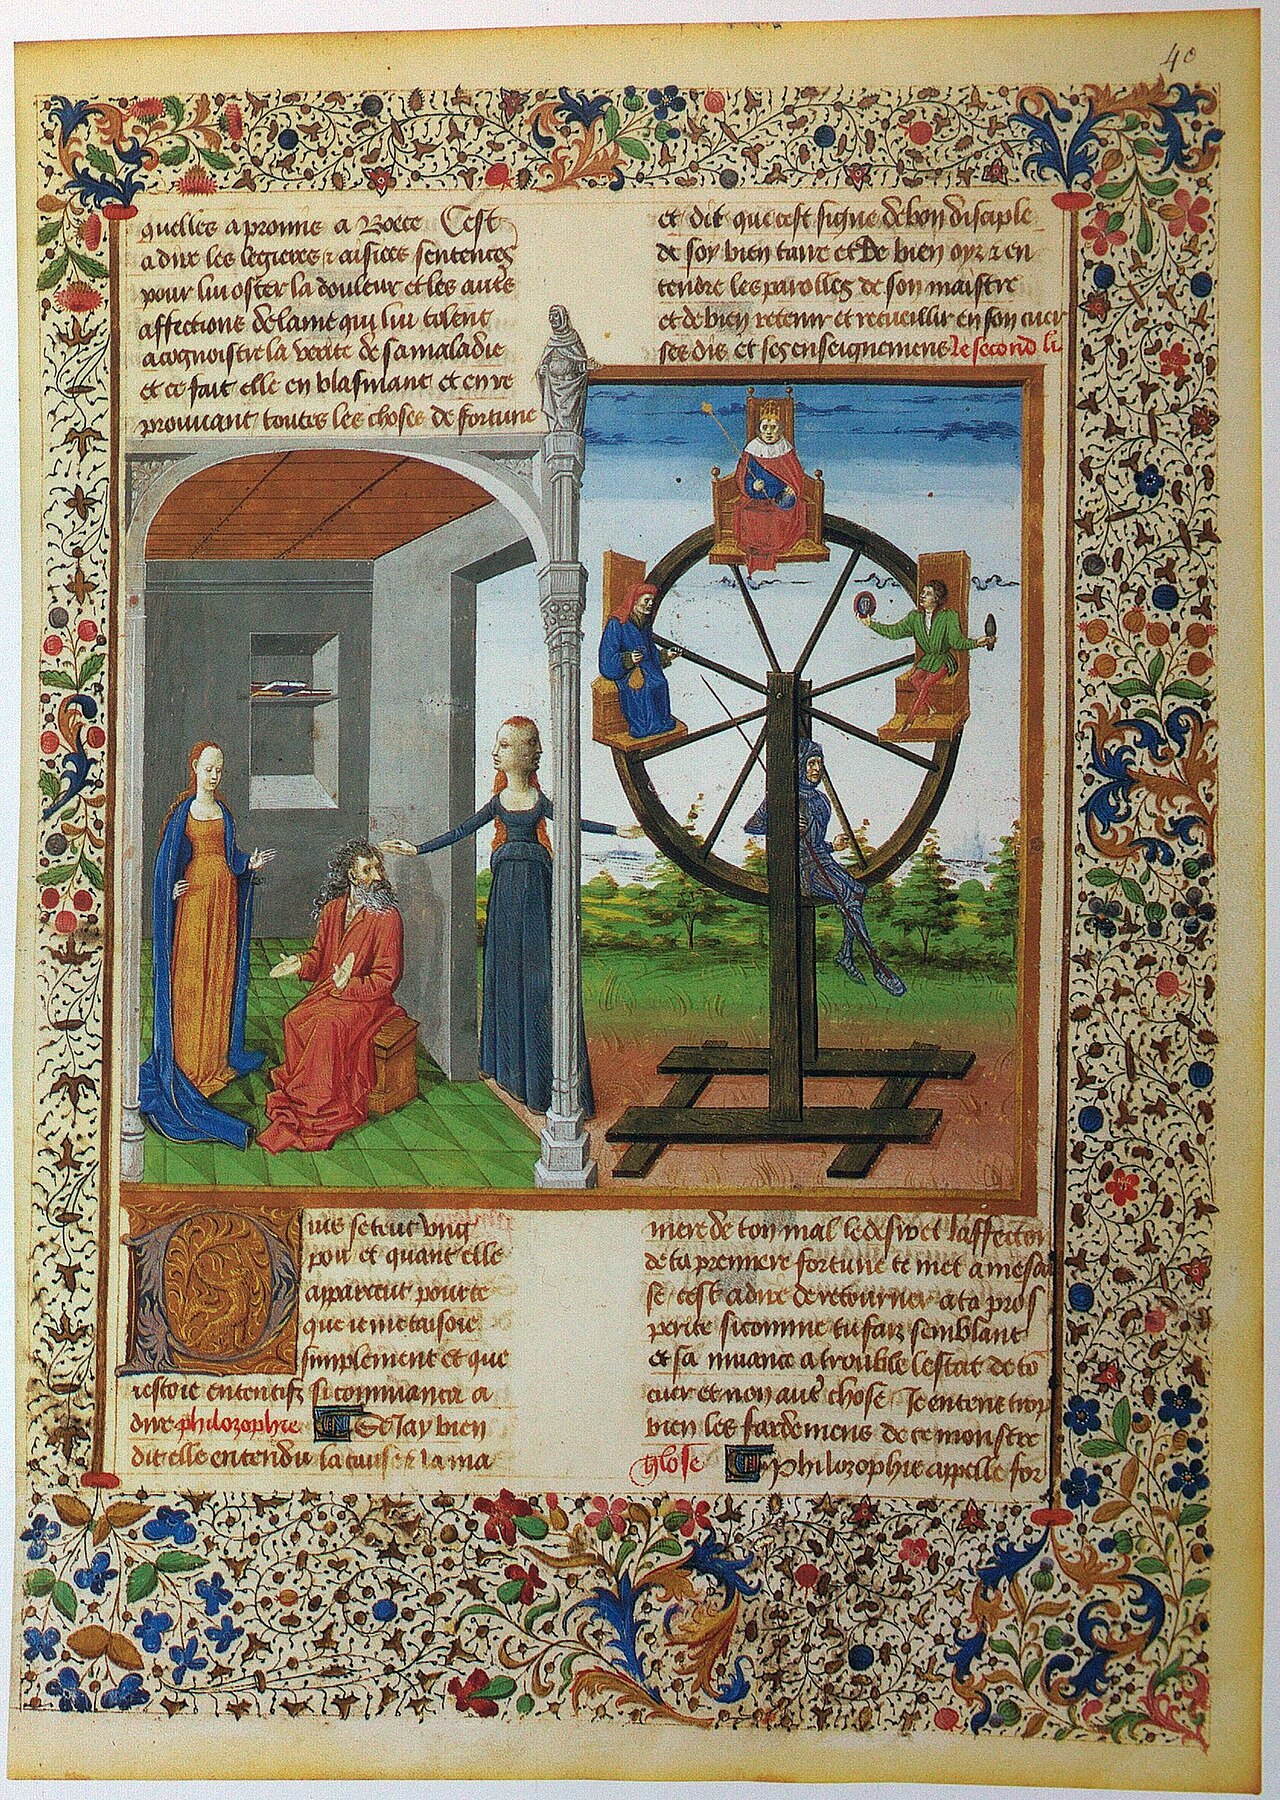 40
quelles apronne a Boece Cest
adire les legieres ⁊ aisiees sentences
pour lui oster la douleur et les autres
affections de lame qui lui tolent
a cognoistre la verite de sa maladie
et ce fait elle en blasmant et en re
prouvant toutes les choses de fortune
et dit que cest signe de bon disciple
de soy bien taire et De bien oyr ⁊ en
tendre les parolles de son maistre
et de bien retenir et recueillir en son cuer
ses dis et ses enseignemens le second li
se teut ung
pou et quant elle
apparceut pour ce
que ie me taisoie
simplement et que
iestoie ententifz si commanca a
dire philozophie Se Jay bien
dit elle entendu la cause ⁊ la ma
niere de ton mal le desir et laffection
de ta premiere fortune te met a mesai
se cest adire de retourner a ta pros
perite si comme tu faiz semblant
et sa muance a trouble lestat de to
cuer et non autre chose Je entent trop
bien les fardemens de ce monstre
glose Philozophie appelle for